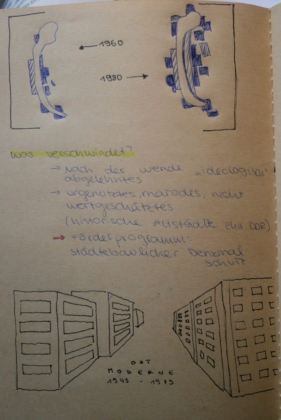 1960
1990
was verschwindet?
→ nach der wende "ideologisch"
abgelehntes
→ ungenutztes, marodes, nicht
wertgeschätztes
(historische Altstädte der DDR)
→ Förderprogramm
städtebaulicher Denkmal
schutz
OST
MODERNE